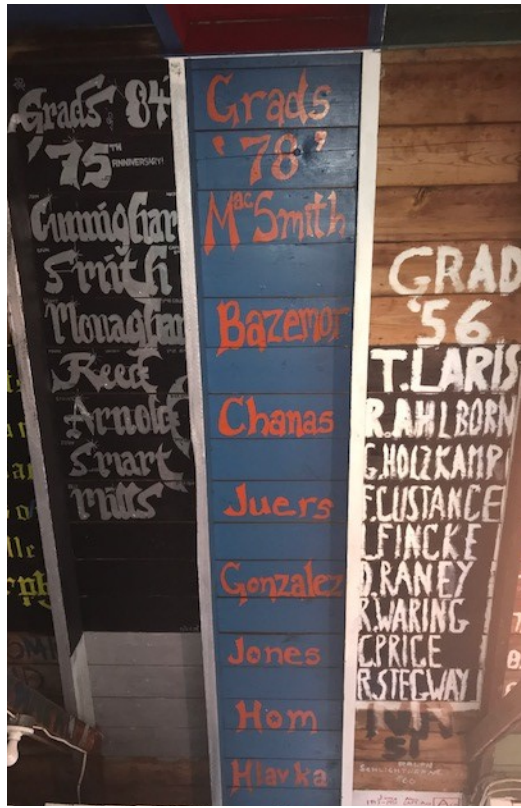 Grads 84
'75TH
ANNIVERSARY!
Cunnighan
Smith
Monaghan
Reed
Arnold
Smart
mills
Grads
'78'
MacSmith
Bazemor
Chanas
Juers
Gonzalez
Jones
Hom
Hlavka
GRAD
'56
T.LARIS
R.AHLBORN
G.HOLZKAMP
F.CUSTANCE
L.FINCKE
D.RANEY
R.WARING
C.PRICE
R.STEGWAY
51
RALPH